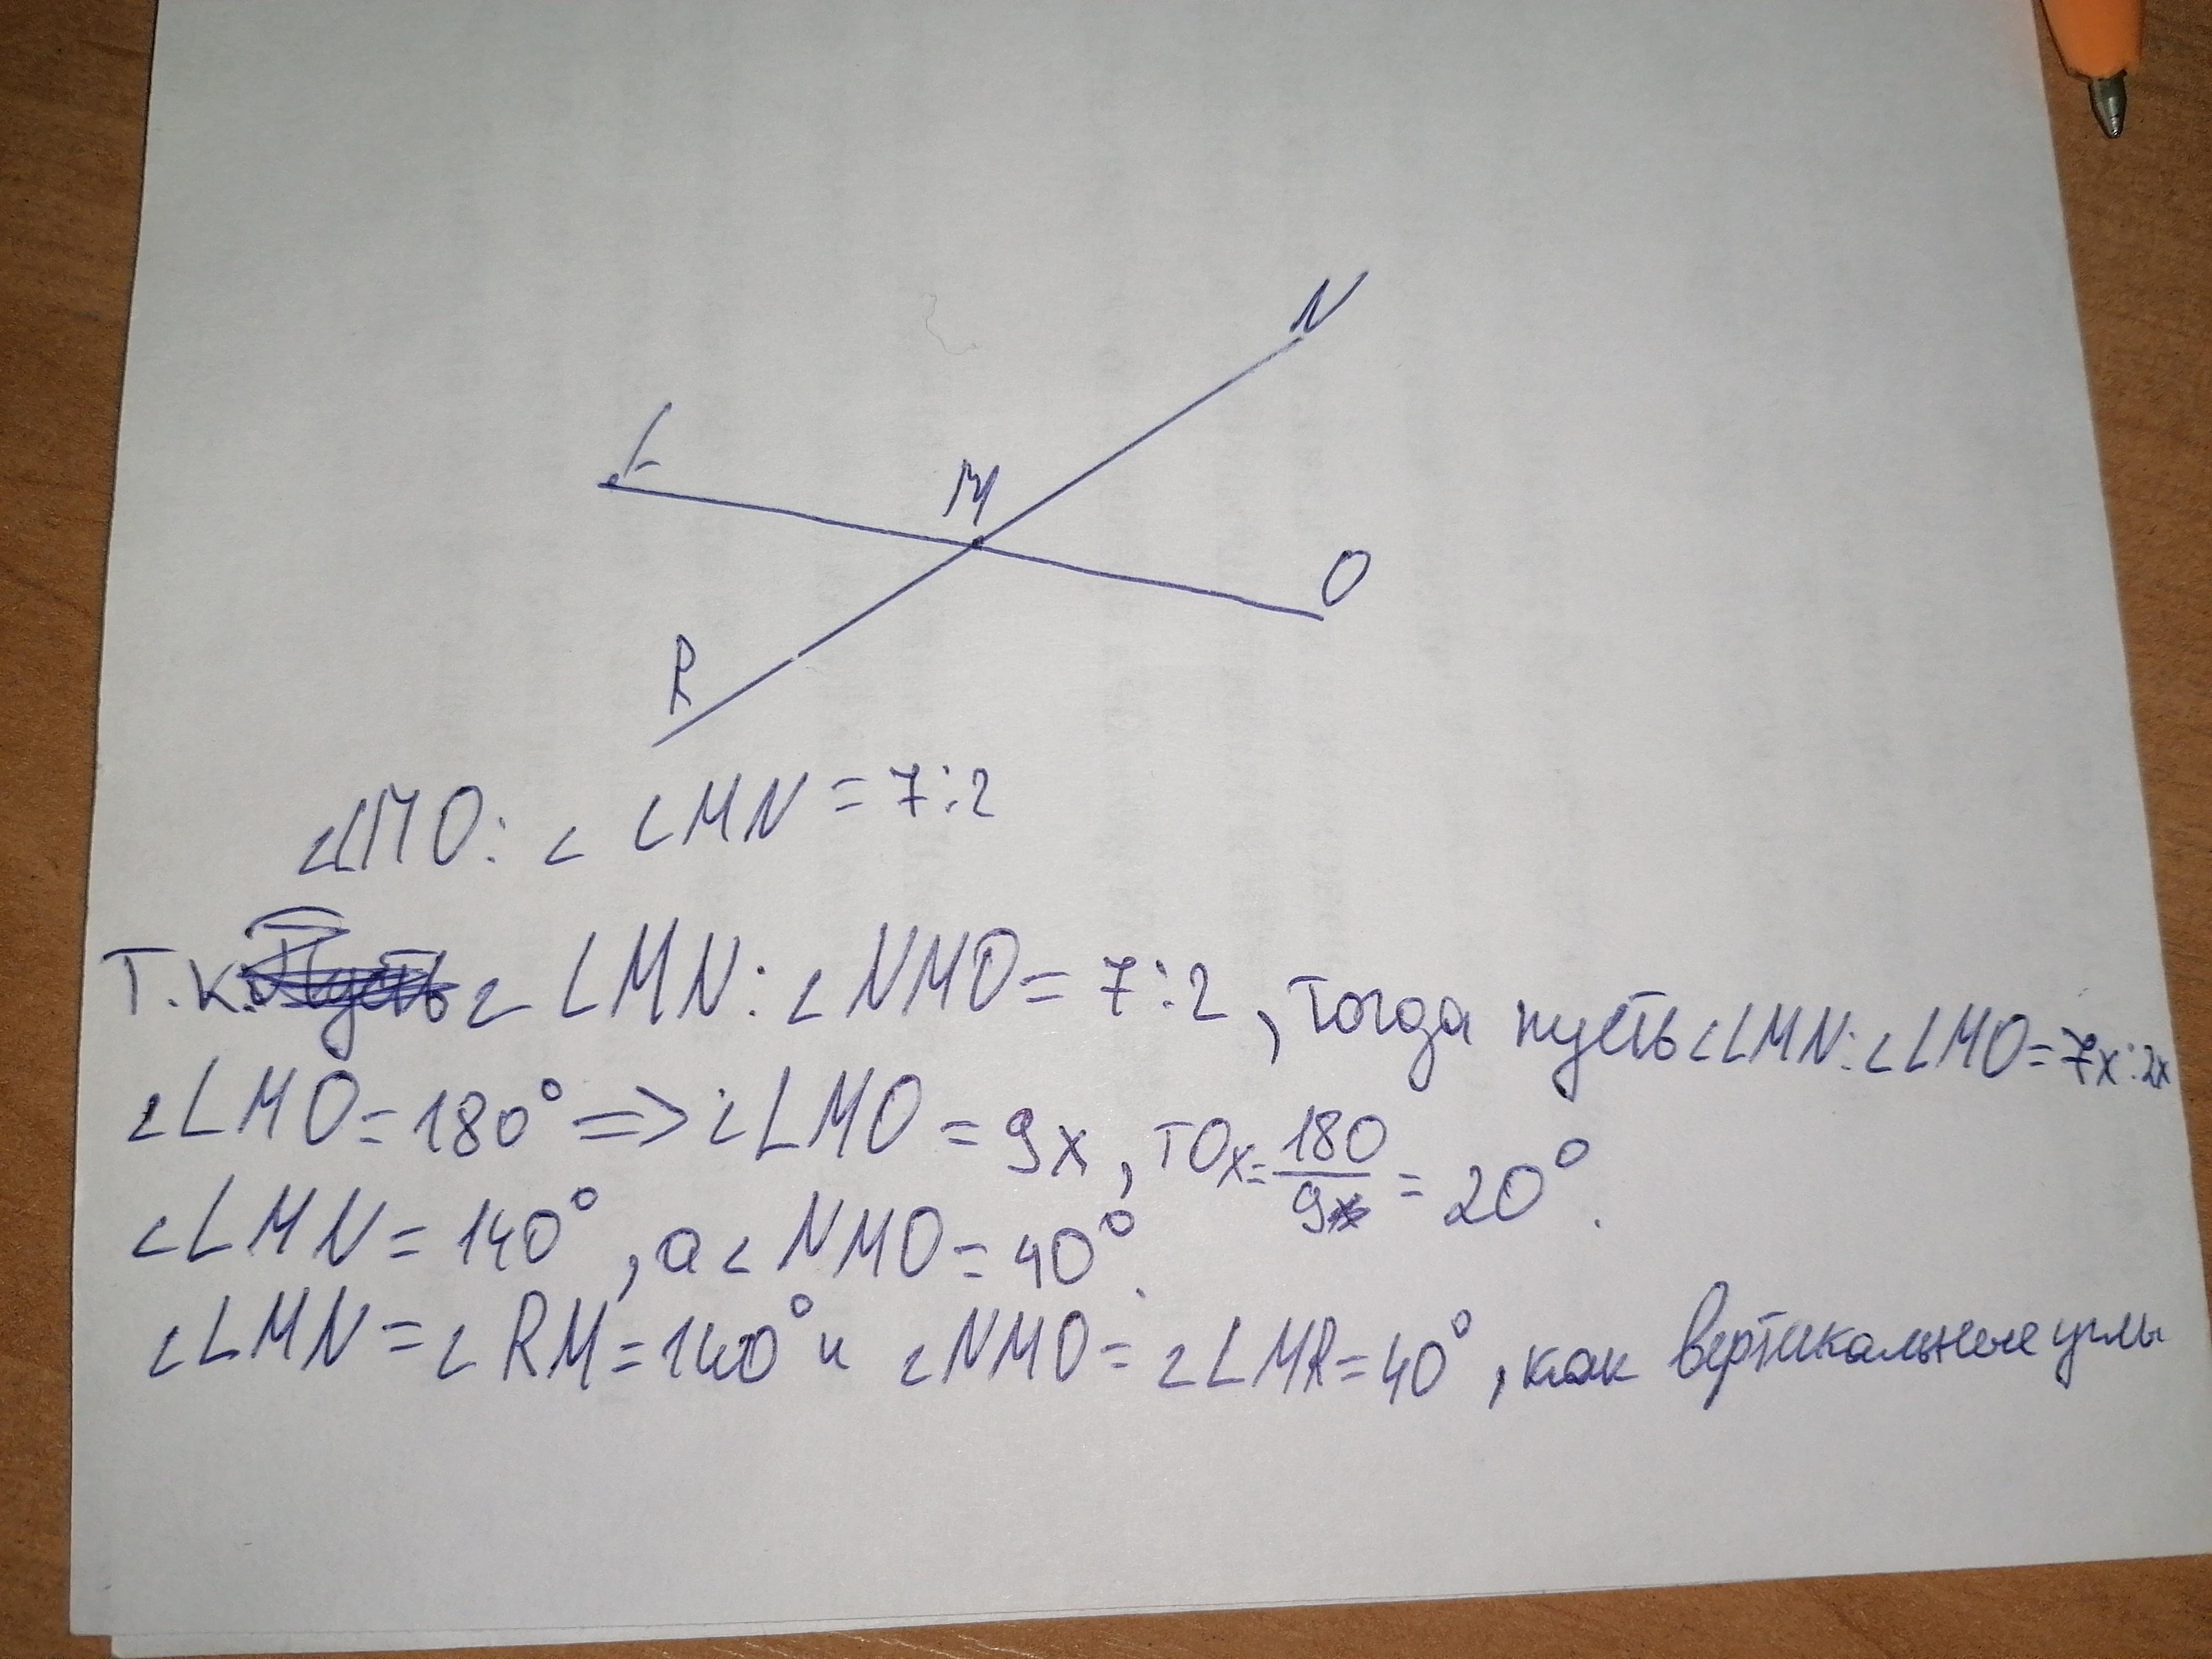 L
N
M
O
R
∠LMO: ∠ LMN = 7:2
Т.к. ∠ LMN: ∠ NMO = 7:2, тогда пусть ∠LMN: ∠LMO = 7x:2x
∠LMO = 180° => ∠LMO = 9x, то x = 180/9 = 20°.
∠LMN = 140°, а ∠ NMO = 40°.
∠LMN = ∠ RM = 140° и ∠NMO = ∠LMR = 40°, как вертикальные углы